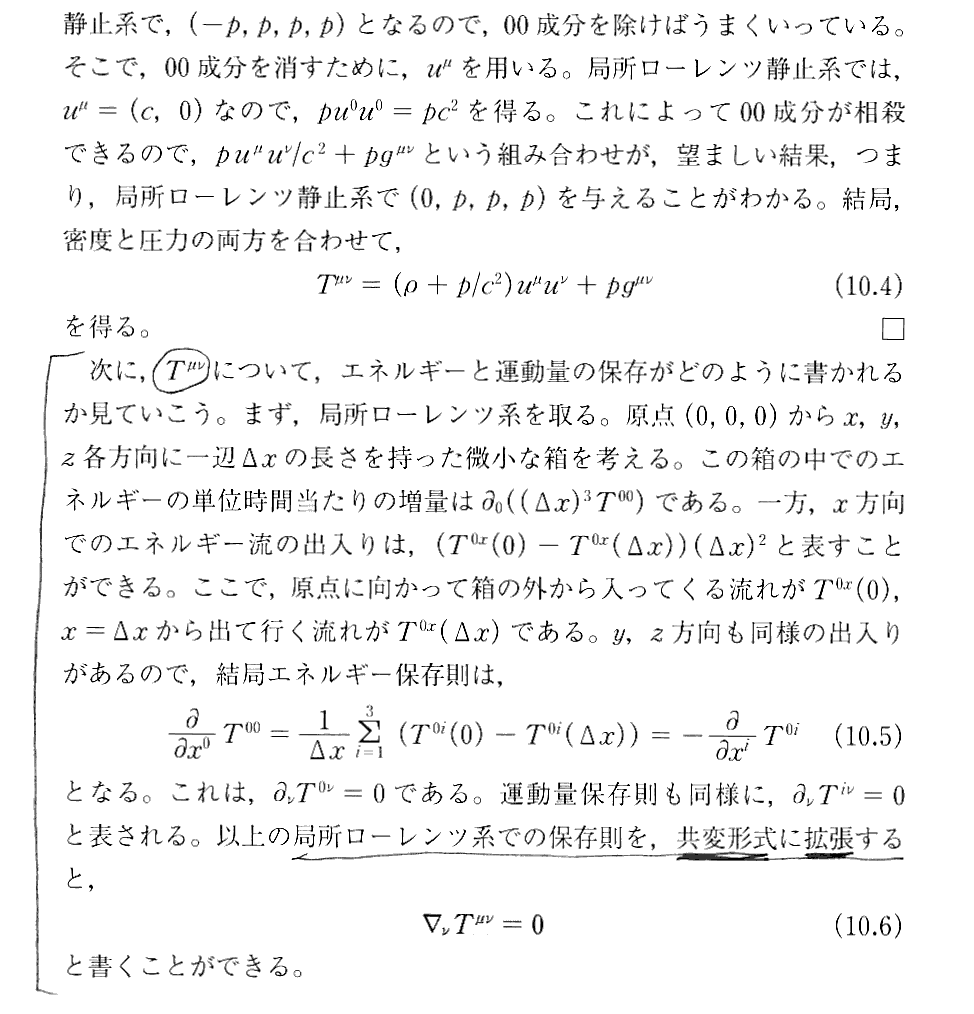 静止系で，(−p, p, p, p) となるので，00 成分を除けばうまくいっている。
そこで，00 成分を消すために，u^μ を用いる。局所ローレンツ静止系では，
u^μ = (c, 0) なので，pu^0u^0 = pc^2 を得る。これによって 00 成分が相殺
できるので，pu^μu^ν/c^2 + pg^{μν} という組み合わせが，望ましい結果，つま
り，局所ローレンツ静止系で (0, p, p, p) を与えることがわかる。結局，
密度と圧力の両方を合わせて，
T^{μν} = (ρ + p/c^2)u^μu^ν + pg^{μν} (10.4)
を得る。 □
次に，T^{μν} について，エネルギーと運動量の保存がどのように書かれる
か見ていこう。まず，局所ローレンツ系を取る。原点 (0, 0, 0) から x, y,
z 各方向に一辺 Δx の長さを持った微小な箱を考える。この箱の中でのエ
ネルギーの単位時間当たりの増量は ∂_0((Δx)^3T^{00}) である。一方，x 方向
でのエネルギー流の出入りは，(T^{0x}(0) − T^{0x}(Δx))(Δx)^2 と表すこと
ができる。ここで，原点に向かって箱の外から入ってくる流れが T^{0x}(0)，
x = Δx から出て行く流れが T^{0x}(Δx) である。y, z 方向も同様の出入り
があるので，結局エネルギー保存則は，
∂/∂x^0 T^{00} = 1/Δx Σ_{i=1}^{3} (T^{0i}(0) − T^{0i}(Δx)) = −∂/∂x^i T^{0i} (10.5)
となる。これは，∂_νT^{0ν} = 0 である。運動量保存則も同様に，∂_νT^{iν} = 0
と表される。以上の局所ローレンツ系での保存則を，共変形式に拡張する
と，
∇_νT^{μν} = 0 (10.6)
と書くことができる。